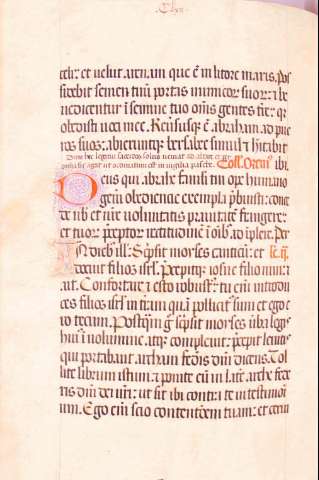 celi: et velut arenam que ē in litore maris. Pos
sidebit semen tuū portas inimicor suor: et be
nedicentur ī semine tuo om̄s gentes tr̄e: qr
obedisti voci mee. Reūsusqʒ ē abraham ad pue
ros suos: abieruntqʒ bersabee simul et hitabit
Dum hec legitur sacerdos solus
Coll. Orem⁹ ibi.
Deus qui abrahe famli tui ope humano
geni obedientie exempla p̄buisti: conce
de nb et nr̄e voluntatis prauitatē frangere:
et tuor p̄ceptor rectitudinē ī oīb⁹ adīplere. Per
In dieb ill: Scpsit moyses canticū: et
docuit filios isrl. Precepitqʒ iosue filio nun: et
ait. Confortare et esto robust⁹: tu eni introduces
ces filios isrl in terram quā pollicit⁹ sum et ego ero
tecum. Postqm̄ g̅ scpsit moyses ūba legis
hui⁹ ī volumine atqʒ compleuit: precepit leuitis
qui portabant archam federis dn̄i dicens. Tol
lite librum istum: et ponite eū in latere arche fede
ris dn̄i dei nr̄i: ut sit ibi contra te in testimoni
um. Ego eni scio contentionem tuam: et ceruī